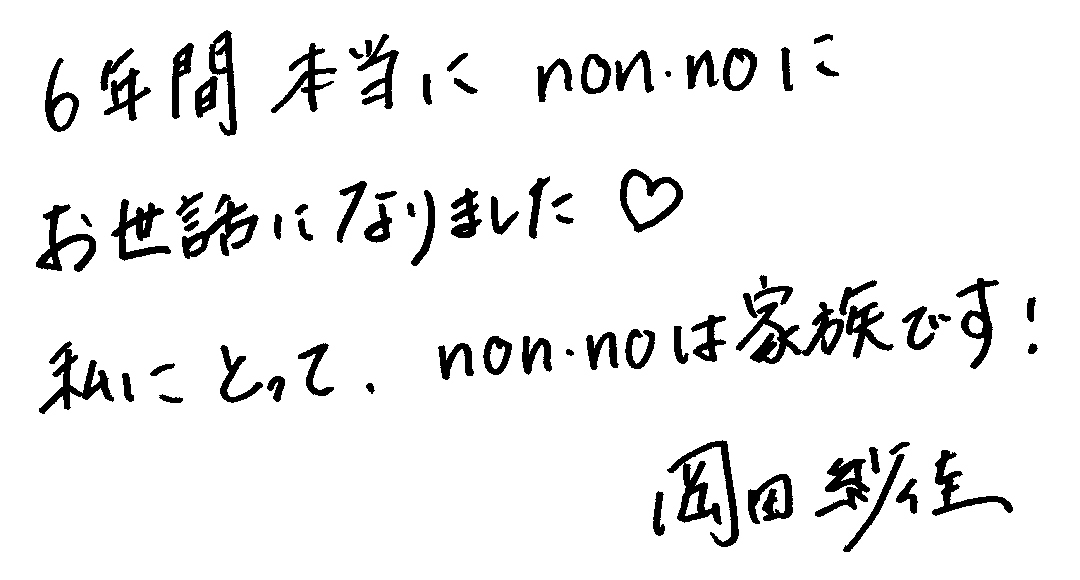 6年間 本当に non・noに
お世話になりました♡
私にとって、non・noは家族です！
岡田紗佳